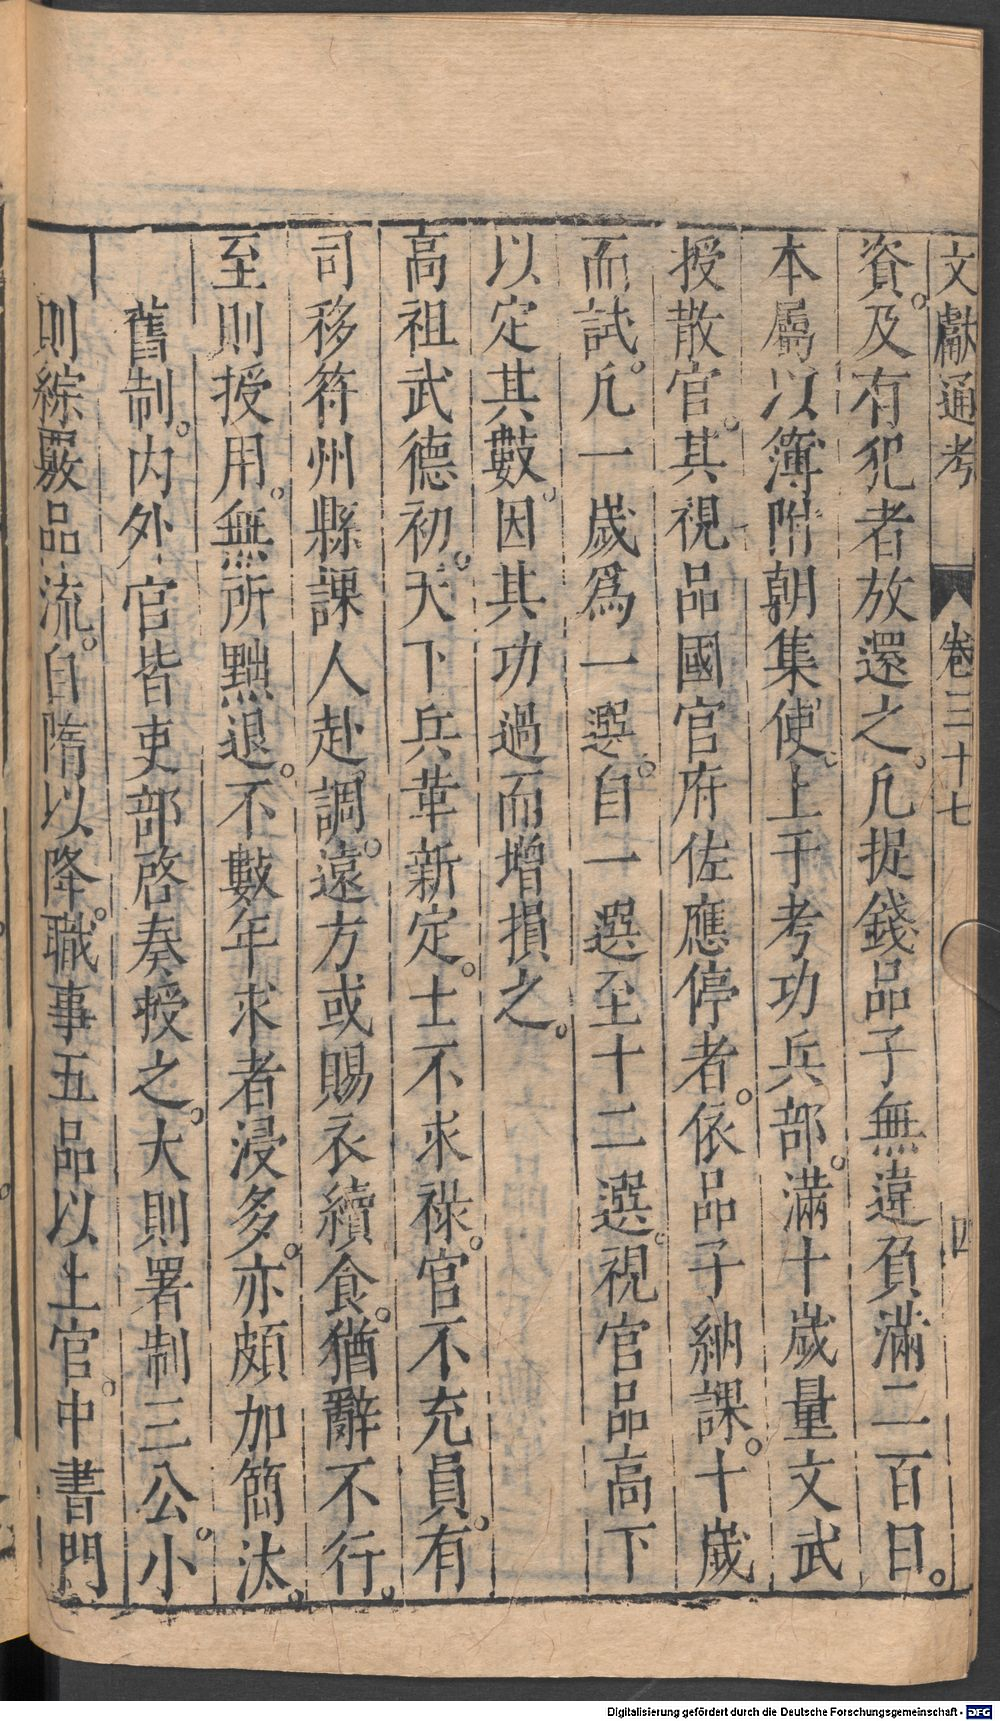 文獻通考 卷三十七 四
資。及有犯者放還之。凡捉錢品子無違負滿二百日。
本屬以簿附朝集使。上于考功兵部。滿十歲量文武
授散官。其視品國官府佐應停者。依品子納課。十歲
而試。凡一歲爲一選。自一選至十二選。視官品高下
以定其數。因其功過而增損之。
高祖武德初。天下兵革新定。士不求祿。官不充員。有
司移符州縣課人赴調。遠方或賜衣續食。猶辭不行。
至則授用。無所黜退。不數年求者浸多。亦頗加簡汰。
舊制。內外官皆吏部啓奏授之。大則署制三公。小
則綜覈品流。自隋以降。職事五品以上官。中書門
Digitalisierung gefördert durch die Deutsche Forschungsgemeinschaft - DFG